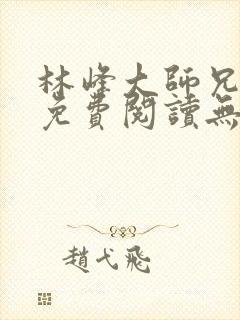 林峰大師兄
免費閱讀無
趙弋飛